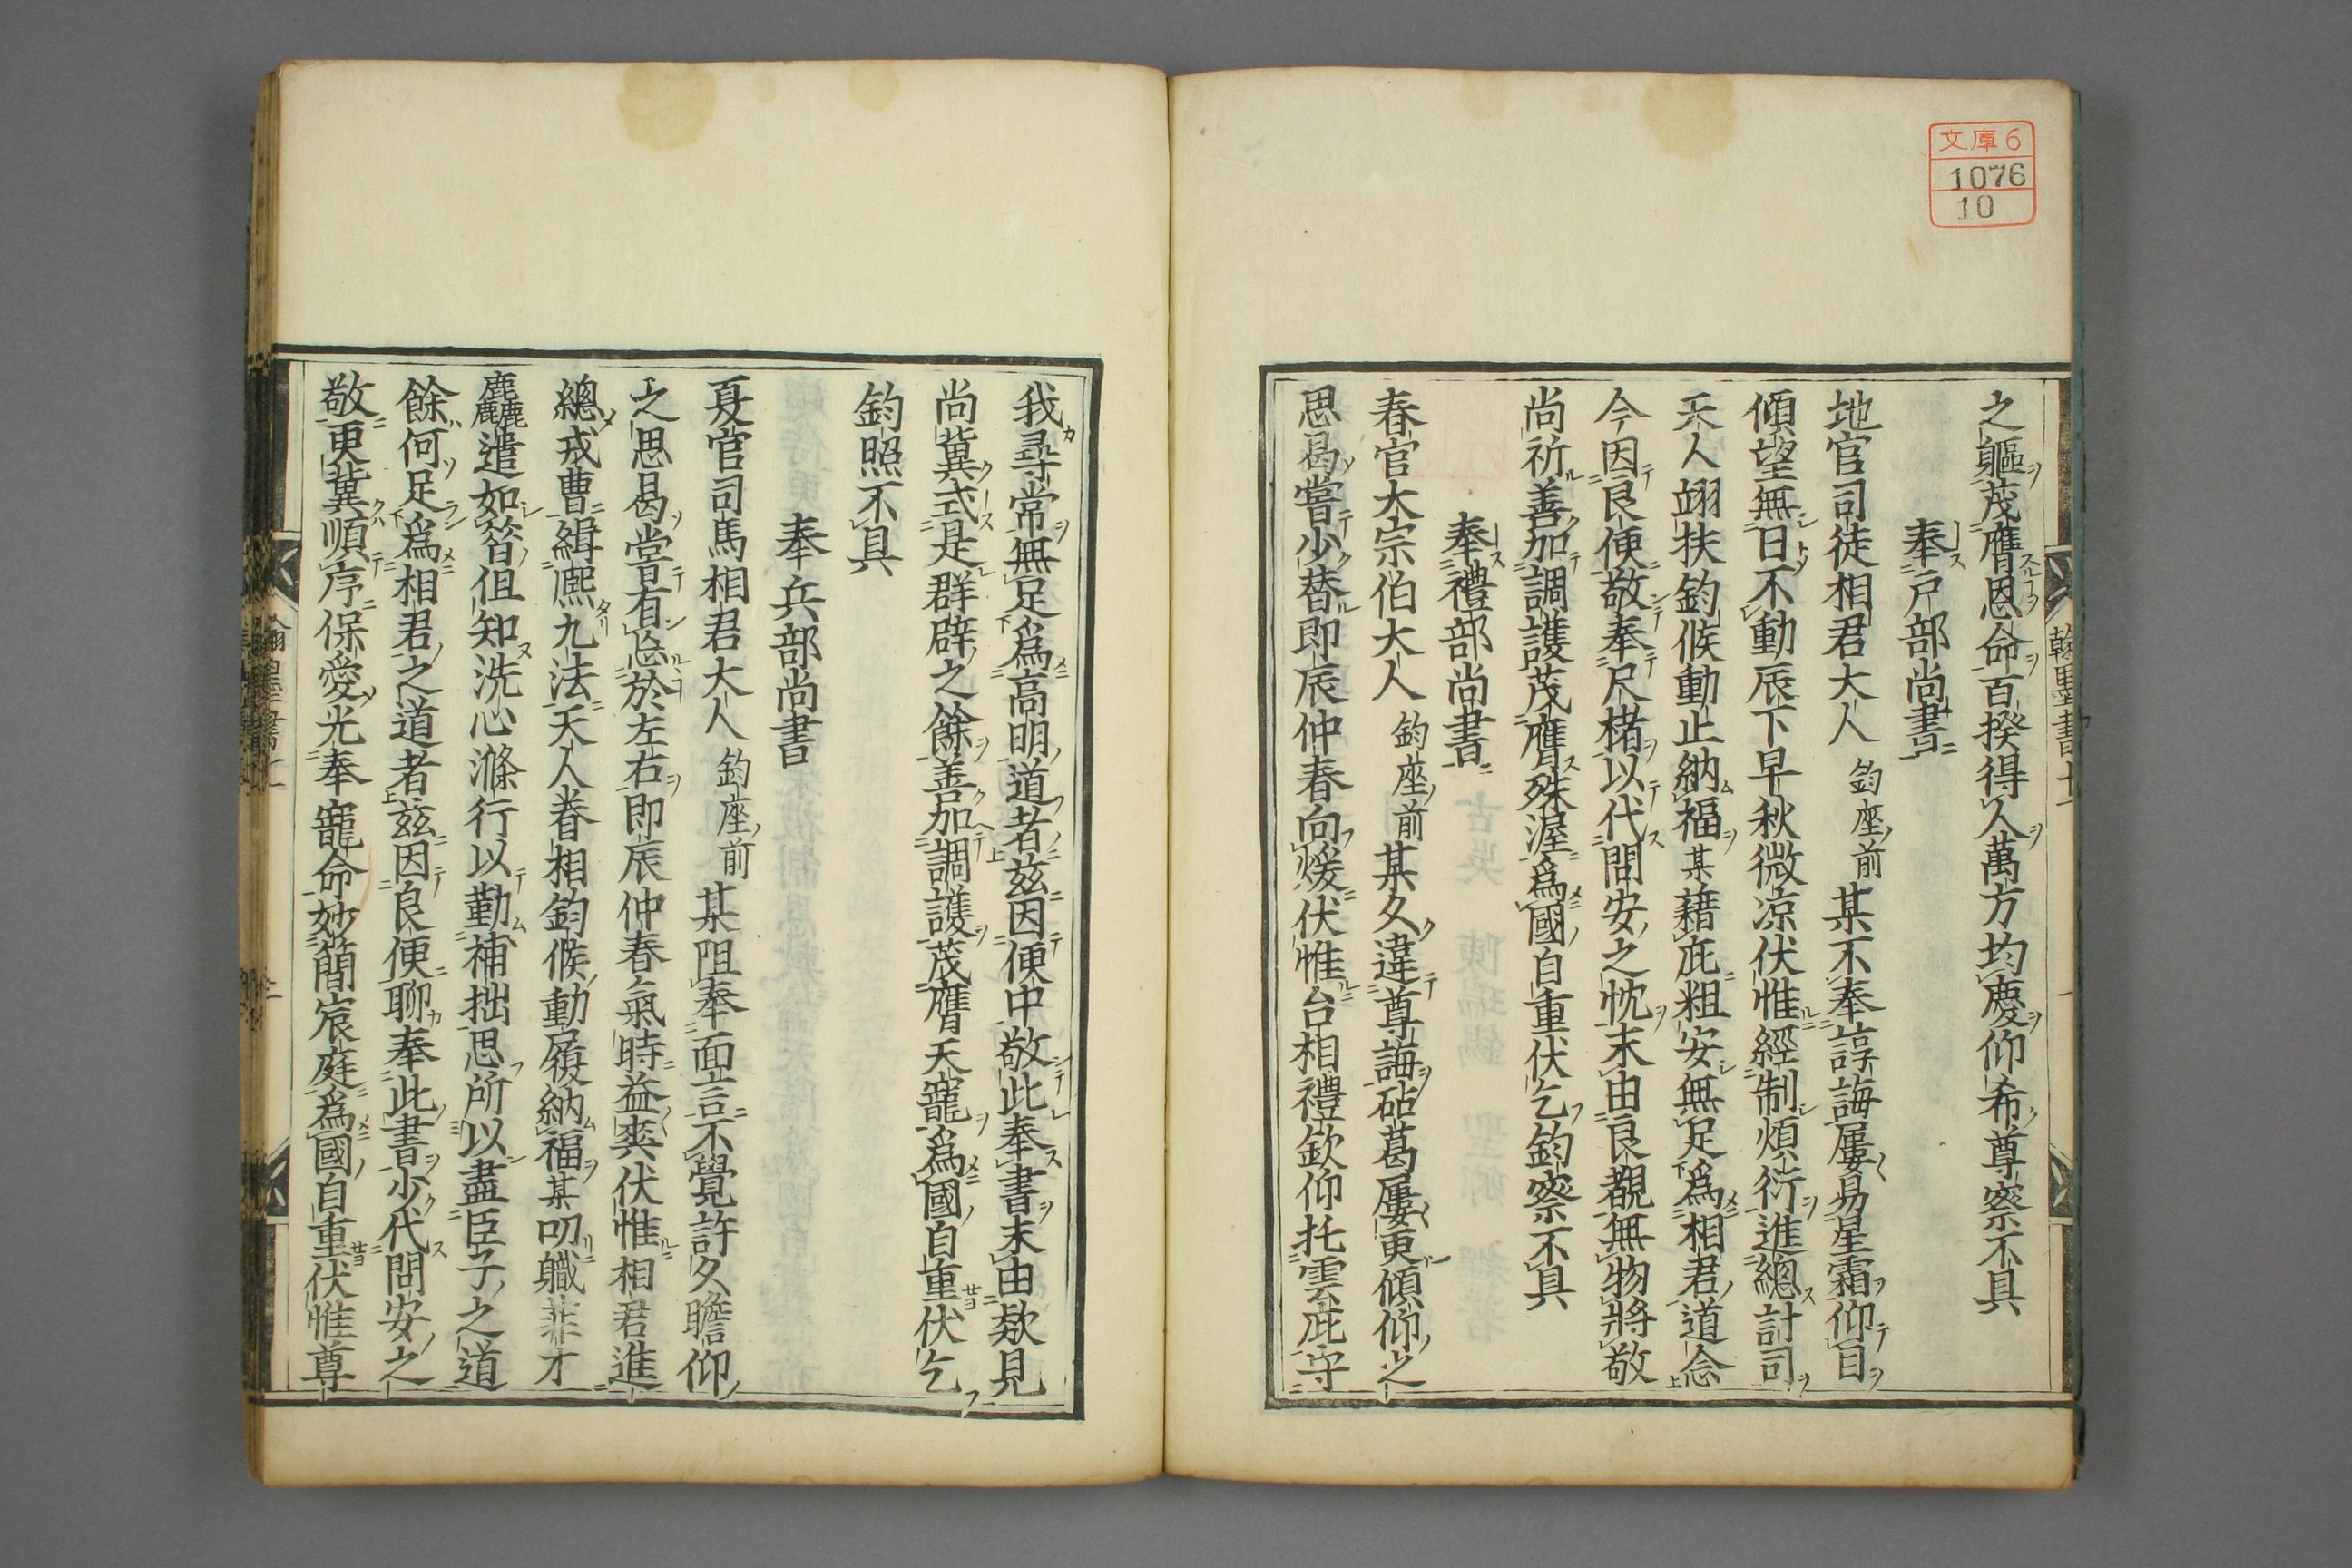 文庫6
1076
10
之軀茂膺恩命百揆得人萬方均慶仰希尊察不具
奉戶部尚書
地官司徒相君大人 鈞座前某不奉諄誨屢易星霜仰目
傾望無日不動辰下早秋微凉伏惟經制煩衍進總計司
天人翊扶鈞候動止納福某藉庇粗安無足為相君道念
今因良便敬奉尺楮以代問安之忱末由良覯無物將敬
尚祈善加調護茂膺殊渥為國自重伏乞鈞察不具
奉禮部尚書
春官大宗伯大人 鈞座前某久違尊誨砧葛屢更傾仰之
思曷嘗少替即辰仲春向煖伏惟台相禮欽仰托雲庇守
我尋常無足為高明道者茲因便中敬此奉書末由欵見
尚冀式是群辟之餘善加調護茂膺天寵為國自重伏乞
鈞照不具
奉兵部尚書
夏官司馬相君大人 鈞座前某阻奉面言不覺許久瞻仰
之思曷嘗有怠於左右即辰仲春氣時益爽伏惟相君進
總戎曹緝熈九法天人眷相鈞候動履納福某叨職菲才
麤遣如答但知洗心滌行以勤補拙思所以盡臣子之道
餘何足為相君之道者茲因良便聊奉此書少代問安之
敬更冀順序保愛光奉寵命妙簡宸庭為國自重伏惟尊